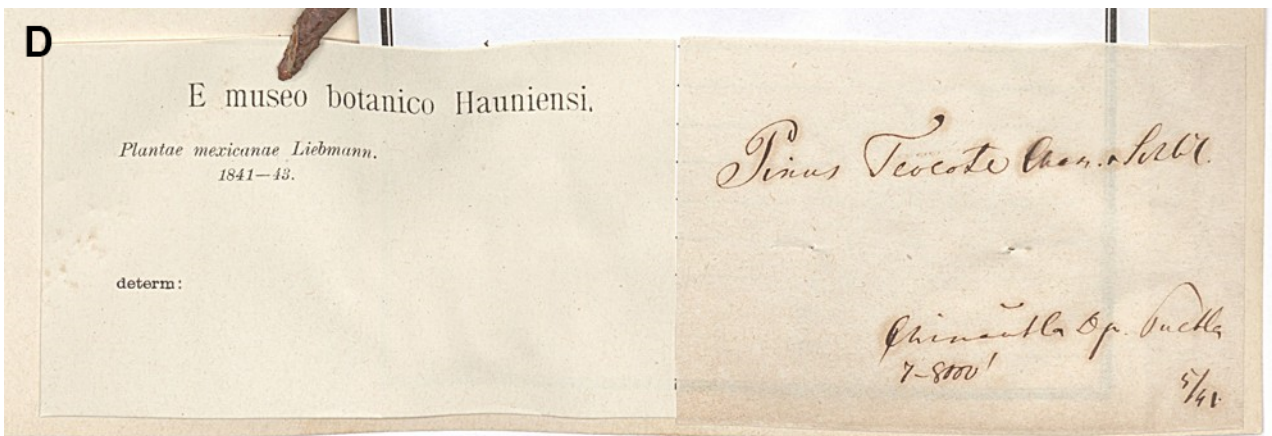 D
E museo botanico Hauniensi.
Plantae mexicanae Liebmann.
1841—43.
determ:
Pinus Teocote Cham. & Schltdl.
Chinautla Dp. Puebla
7-8000'
5/41.